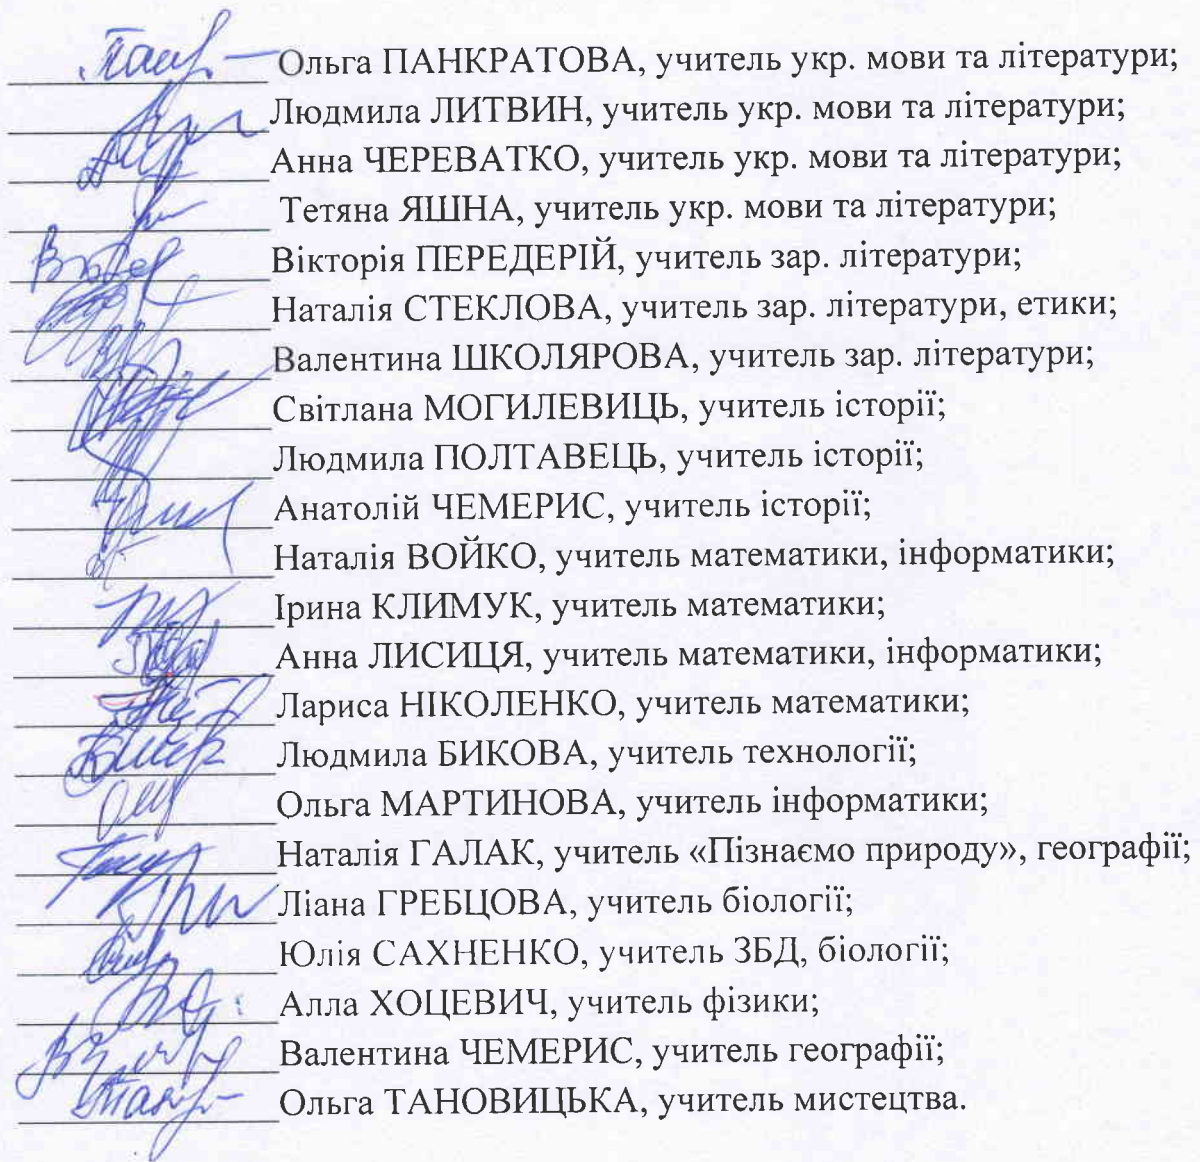 Ольга ПАНКРАТОВА, учитель укр. мови та літератури;
Людмила ЛИТВИН, учитель укр. мови та літератури;
Анна ЧЕРЕВАТКО, учитель укр. мови та літератури;
Тетяна ЯШНА, учитель укр. мови та літератури;
Вікторія ПЕРЕДЕРІЙ, учитель зар. літератури;
Наталія СТЕКЛОВА, учитель зар. літератури, етики;
Валентина ШКОЛЯРОВА, учитель зар. літератури;
Світлана МОГИЛЕВИЦЬ, учитель історії;
Людмила ПОЛТАВЕЦЬ, учитель історії;
Анатолій ЧЕМЕРИС, учитель історії;
Наталія ВОЙКО, учитель математики, інформатики;
Ірина КЛИМУК, учитель математики;
Анна ЛИСИЦЯ, учитель математики, інформатики;
Лариса НІКОЛЕНКО, учитель математики;
Людмила БИКОВА, учитель технології;
Ольга МАРТИНОВА, учитель інформатики;
Наталія ГАЛАК, учитель «Пізнаємо природу», географії;
Ліана ГРЕБЦОВА, учитель біології;
Юлія САХНЕНКО, учитель ЗБД, біології;
Алла ХОЦЕВИЧ, учитель фізики;
Валентина ЧЕМЕРИС, учитель географії;
Ольга ТАНОВИЦЬКА, учитель мистецтва.